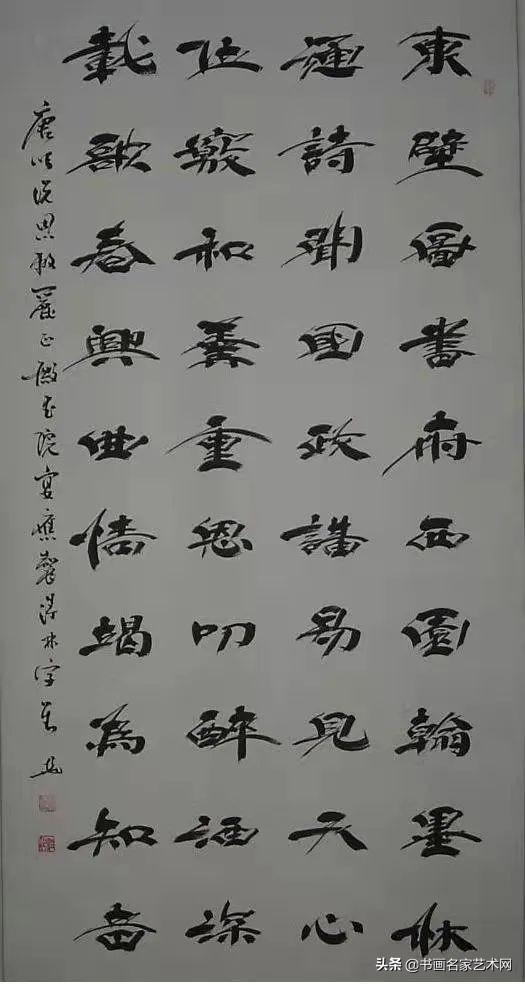 東壁圖書府西園翰墨林
誦詩聞國政講易見天心
位竊和羹重恩叨醉酒深
載歌春興曲情竭為知音
唐張說恩敕麗正殿書院宴應製得林字
头条 @书画名家艺术网